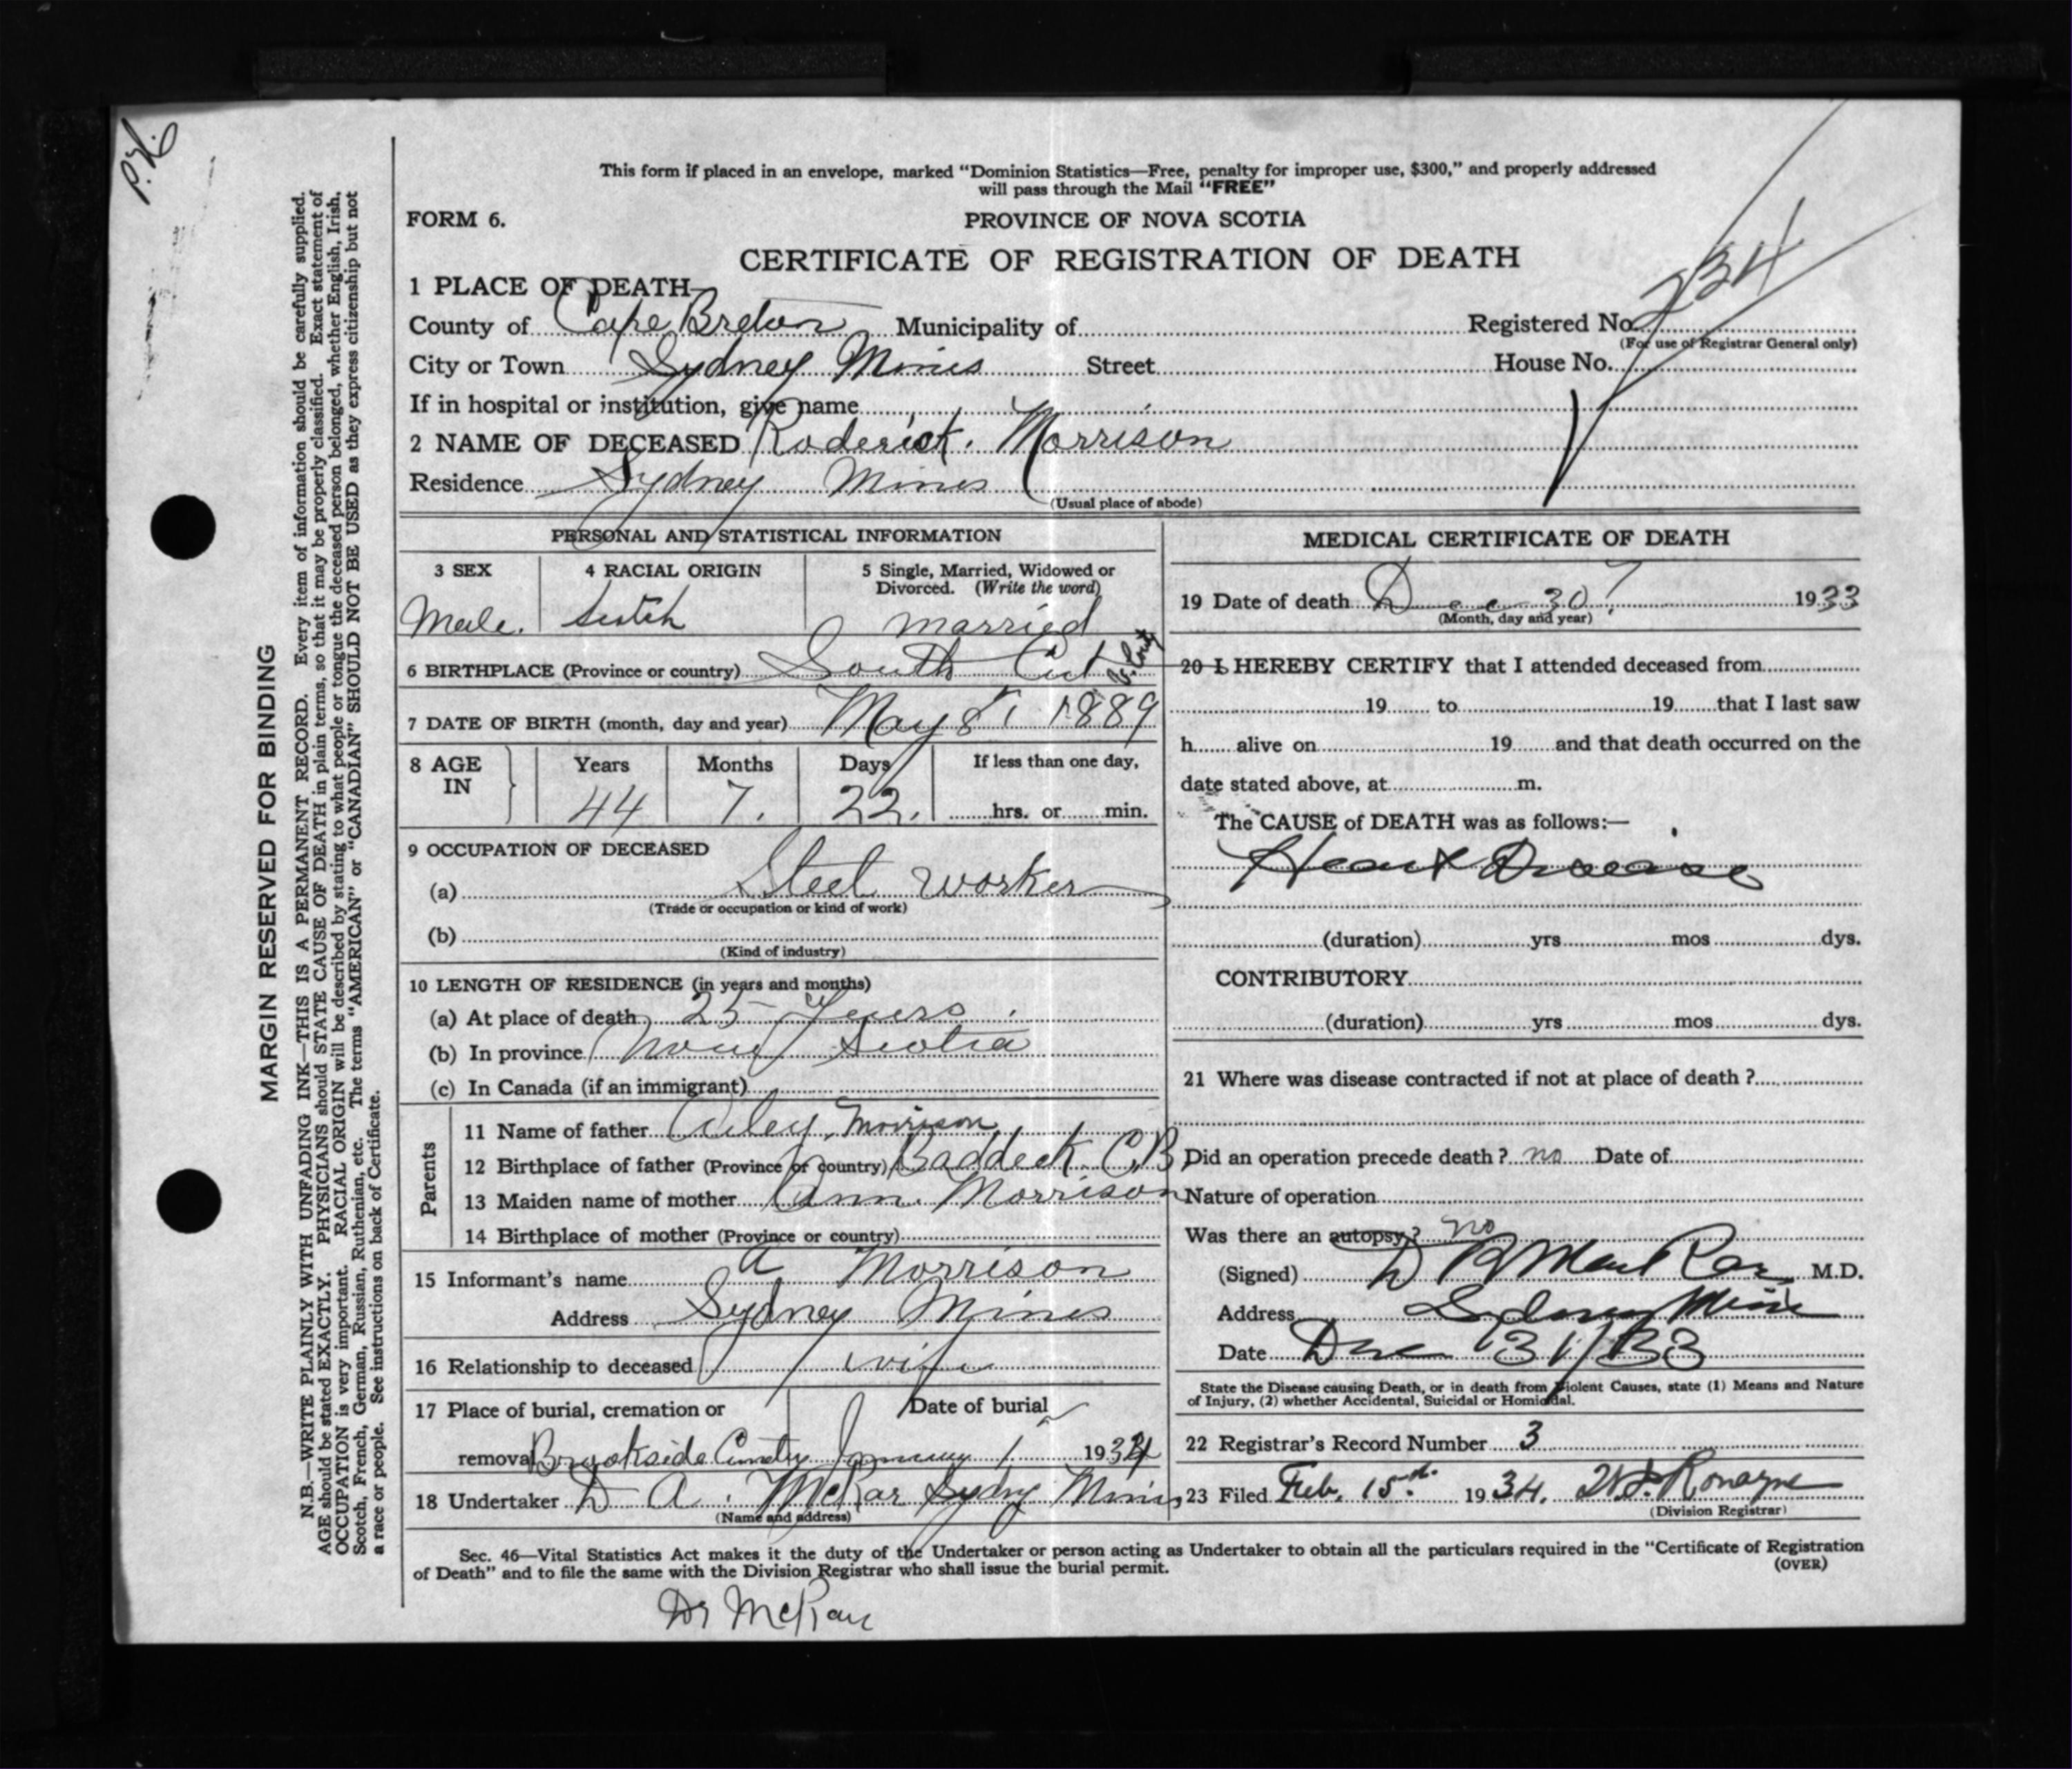 P.V.
This form if placed in an envelope, marked "Dominion Statistics—Free, penalty for improper use, $300," and properly addressed
will pass through the Mail "FREE"
FORM 6.
PROVINCE OF NOVA SCOTIA
CERTIFICATE OF REGISTRATION OF DEATH
234
1 PLACE OF DEATH
County of Cape Breton Municipality of Registered No.
(For use of Registrar General only)
City or Town Sydney Mines Street House No.
If in hospital or institution, give name
2 NAME OF DECEASED Roderick. Morrison
Residence Sydney Mines
(Usual place of abode)
PERSONAL AND STATISTICAL INFORMATION
3 SEX 4 RACIAL ORIGIN 5 Single, Married, Widowed or
Divorced. (Write the word)
Male. Scotch married
6 BIRTHPLACE (Province or country) South Cut
7 DATE OF BIRTH (month, day and year) May 8 1889
8 AGE Years Months Days If less than one day,
IN 44 7. 22. hrs. or min.
9 OCCUPATION OF DECEASED
(a) Steel worker
(Trade or occupation or kind of work)
(b)
(Kind of industry)
10 LENGTH OF RESIDENCE (in years and months)
(a) At place of death 25 Years.
(b) In province Nova Scotia
(c) In Canada (if an immigrant)
Parents
11 Name of father Auley Morrison
12 Birthplace of father (Province or country) Baddeck. C.B.
13 Maiden name of mother Ann. Morrison
14 Birthplace of mother (Province or country)
15 Informant's name A Morrison
Address Sydney Mines
16 Relationship to deceased wife
17 Place of burial, cremation or Date of burial
removal Brookside January 1 1934
18 Undertaker D A. McRae Sydney Mines
(Name and address)
MEDICAL CERTIFICATE OF DEATH
19 Date of death Dec 30 1933
(Month, day and year)
20 I HEREBY CERTIFY that I attended deceased from
19 to 19 that I last saw
h alive on 19 and that death occurred on the
date stated above, at m.
The CAUSE of DEATH was as follows:—
Heart Disease
(duration) yrs mos dys.
CONTRIBUTORY
(duration) yrs mos dys.
21 Where was disease contracted if not at place of death?
Did an operation precede death? no Date of
Nature of operation
Was there an autopsy? no
(Signed) M.D.
Address Sydney Mines
Date Dec 31/33
State the Disease causing Death, or in death from Violent Causes, state (1) Means and Nature
of Injury, (2) whether Accidental, Suicidal or Homicidal.
22 Registrar's Record Number 3
23 Filed Feb. 15th. 1934. Ronayne
(Division Registrar)
Sec. 46—Vital Statistics Act makes it the duty of the Undertaker or person acting as Undertaker to obtain all the particulars required in the "Certificate of Registration
of Death" and to file the same with the Division Registrar who shall issue the burial permit.
(OVER)
Dr McRae
MARGIN RESERVED FOR BINDING
N.B.—WRITE PLAINLY WITH UNFADING INK—THIS IS A PERMANENT RECORD. Every item of information should be carefully supplied.
AGE should be stated EXACTLY. PHYSICIANS should STATE CAUSE OF DEATH in plain terms, so that it may be properly classified. Exact statement of
OCCUPATION is very important. RACIAL ORIGIN will be described by stating to what people or tongue the deceased person belonged, whether English, Irish,
Scotch, French, German, Russian, Ruthenian, etc. The terms "AMERICAN" or "CANADIAN" SHOULD NOT BE USED as they express citizenship but not
a race or people. See instructions on back of Certificate.